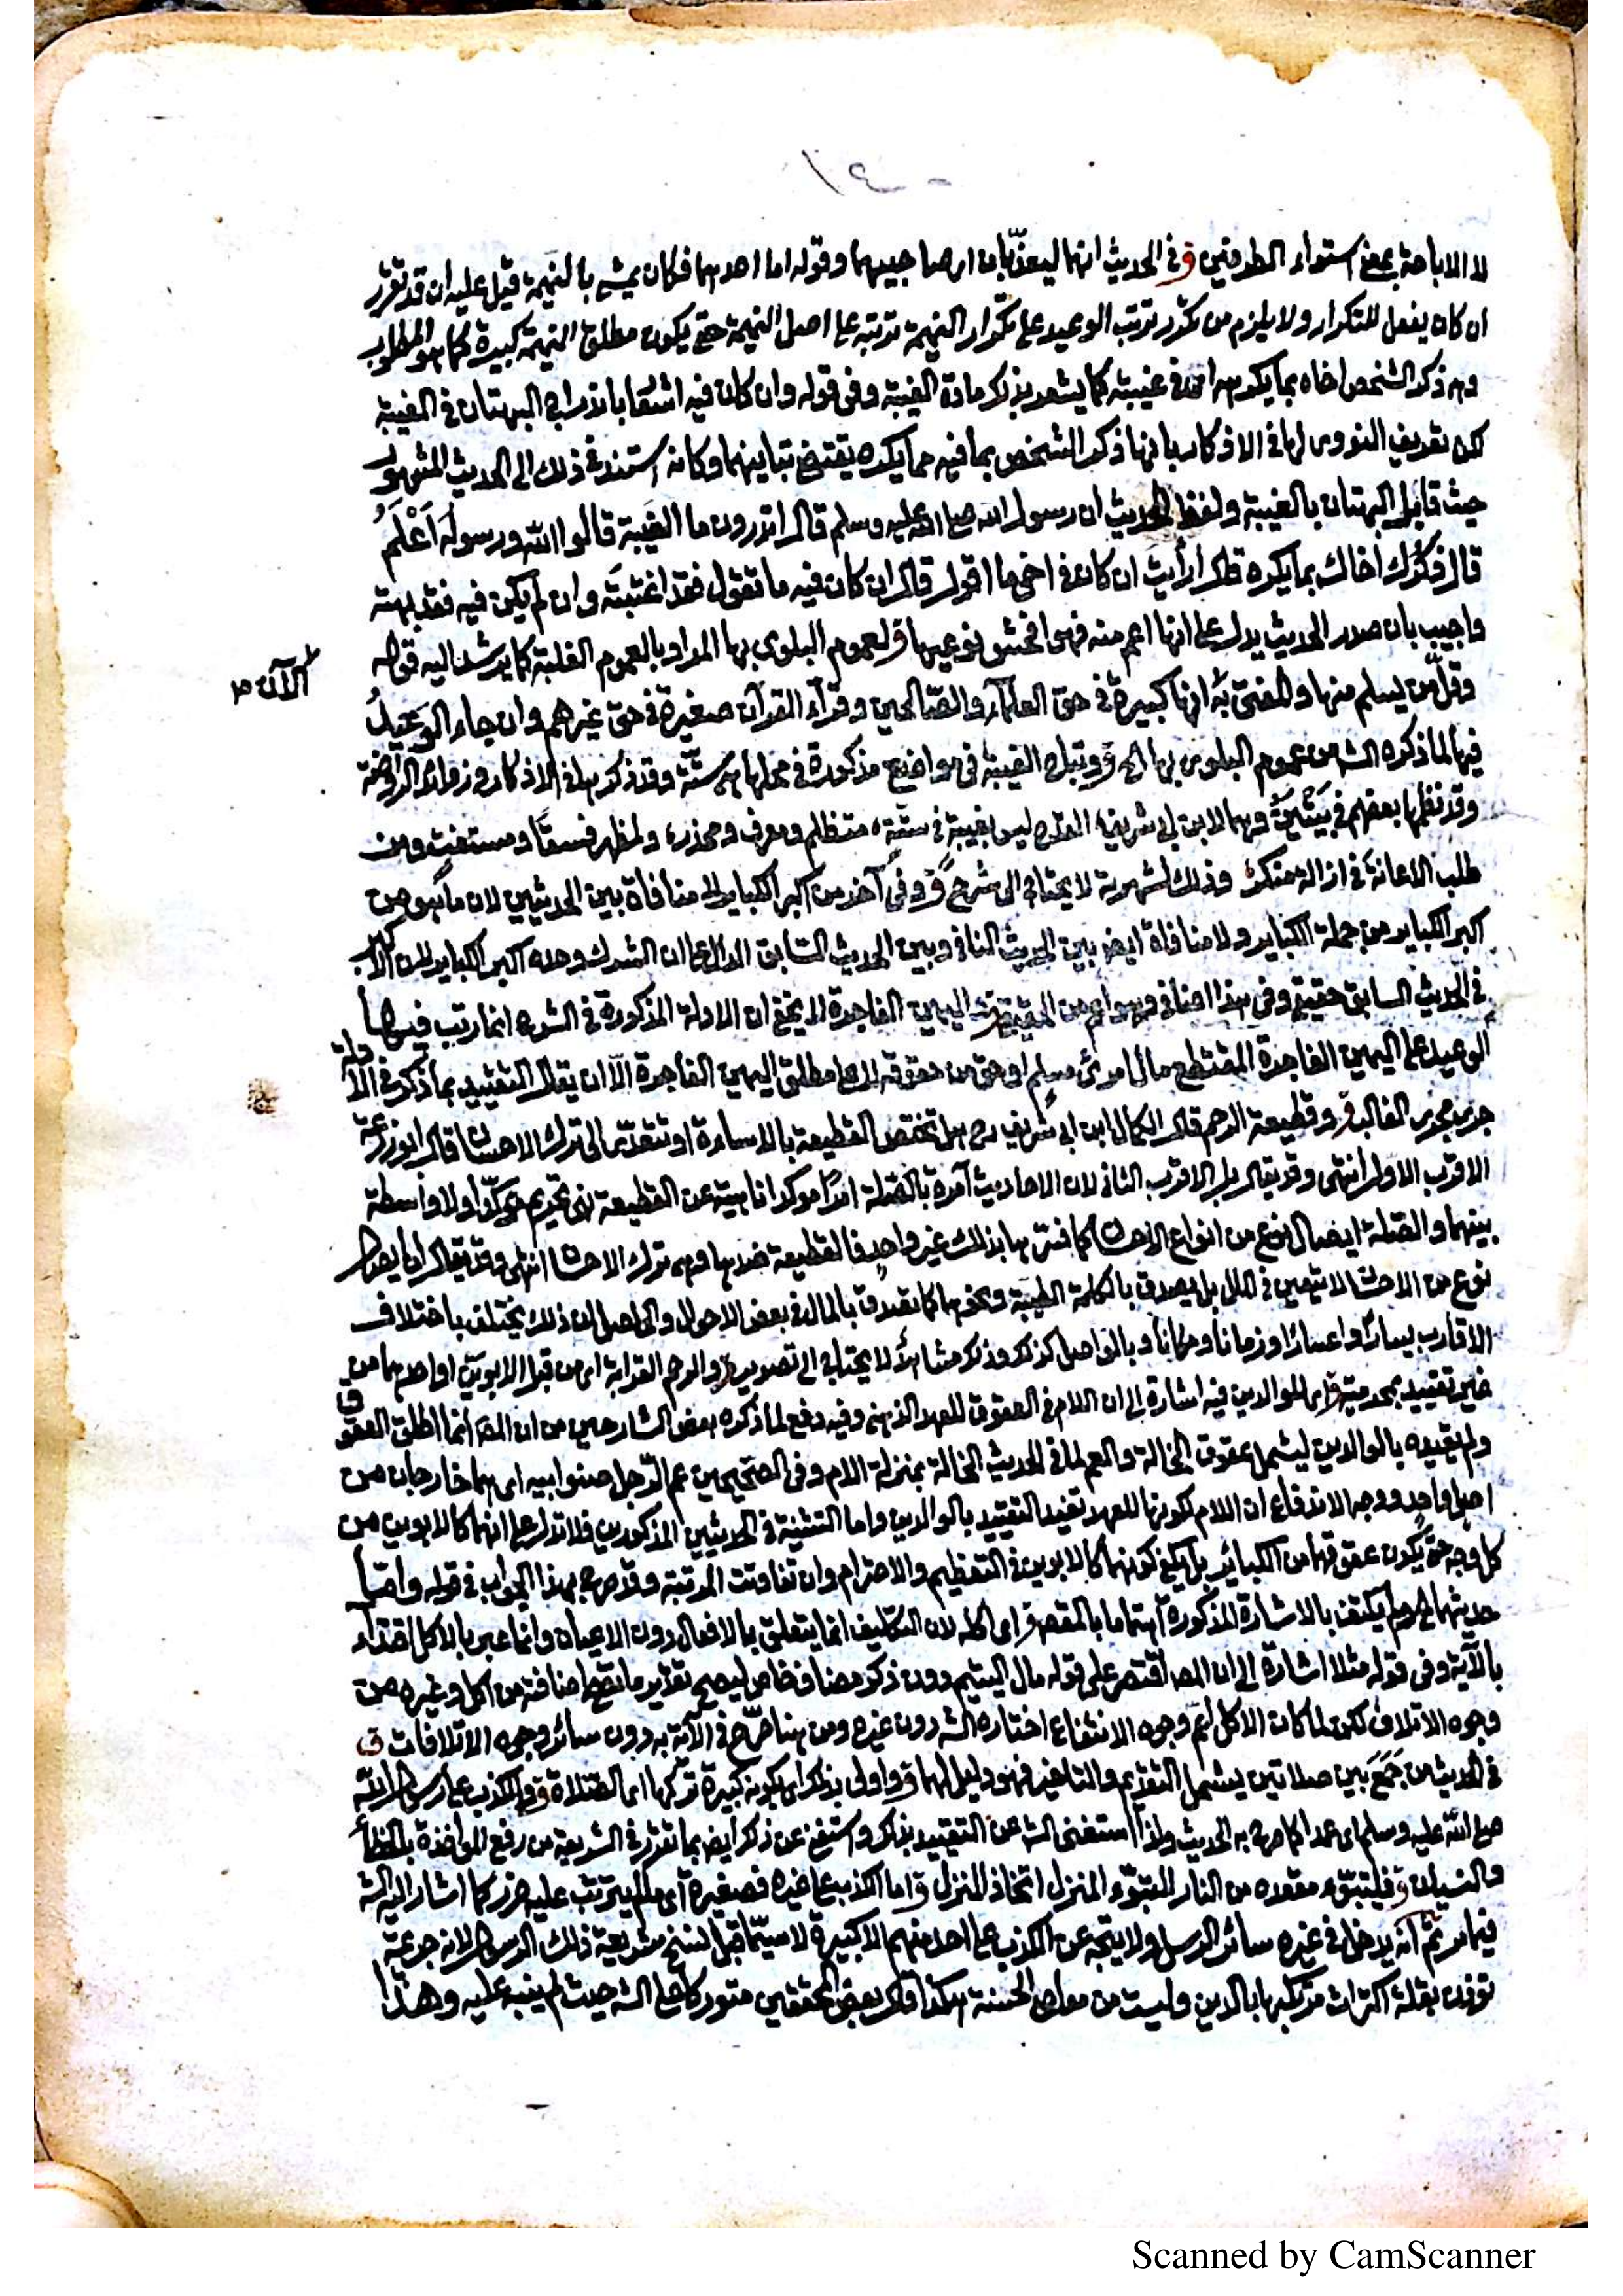 ١٤٠
لا الاباحة بمعنى استواء الطرفين ق في الحديث انهما ليعذبان امر صاحبيهما وقوله اما احدهما فكان يمشي بالنميمة قيل عليه ان قد تقرر
ان كان يفعل للتكرار ولا يلزم من تكرر ترتب الوعيد على تكرار النميمة ترتبه على اصل النميمة حتى يكون مطلق النميمة كبيرة كما هو المطلوب
وهي ذكر الشخص اخاه بما يكرهه اى في غيبته كما يشعر به ذكر مادة الغيبة وفى قوله وان كان فيه اشعار باندراج البهتان في الغيبة
لكن تعريف النووى لها في الاذكار بانها ذكر الشخص بما فيه مما يكره يقتضي تباينهما وكانه استند في ذلك الى الحديث المشهور
حيث قابل البهتان بالغيبة ولفظ الحديث ان رسول الله صلى الله عليه وسلم قال اتدرون ما الغيبة قالوا الله ورسوله اَعْلَمُ
قال ذكرك اخاك بما يكره قال ارأيت ان كان في اخى ما اقول قال ان كان فيه ما تقول فقد اغتبته وان لم يكن فيه فقد بهته
واجيب بان صدر الحديث يدل على انها اعم منه فهو افحش نوعيها ق لعموم البلوى بها المراد بالعموم الغلبة كما يرشد اليه قوله
وقل من يسلم منها والمفتى به انها كبيرة في حق العلماء والصالحين وقرآء القرآن صغيرة في حق غيرهم وان جاء الوعيد
الآن
فيها لما ذكره الشه من عموم البلوى بها الخ ق وتباح الغيبة في مواضع مذكورة في محلها هي ستة وقد ذكرها في الاذكار وزوائد الروضة
وقد نظمها بعضهم في بيتين وهما لابن ابي شريف القدح ليس بغيبة في ستة، متظلم ومعرف ومحذر، ولمظهر فسقا ومستفت ومن
طلب الاعانة في ازالة منكر وذلك لشهرته لا يحتاج الى شرح ق وفي آخر من اكبر الكبائر لا منافاة بين الحديثين لان ما هو من
اكبر الكبائر من جملة الكبائر ولا منافاة ايضا بين الحديث الثانى وبين الحديث السابق الدال على ان الشرك وحده اكبر الكبائر لان الاكبر
في الحديث السابق حقيقي وفى هذا اضافى وهو اعم من الحقيقى ق اليمين الفاجرة لا يخفى ان الادلة المذكورة في الشرح انما رتب فيها
الوعيد على اليمين الفاجرة المقتطع مال امرئ مسلم او حق من حقوقه لا على مطلق اليمين الفاجرة الا ان يقال التقييد بما ذكر في الادلة
جرى مجرى الغالب ق وقطيعة الرحم قال الكمال ابن ابي شريف رح هل تختص القطيعة بالاساءة او تتعدى الى ترك الاحسان قال ابو زرعة
الاقرب الاول انتهى وقد يقال بل الاقرب الثانى لان الاحاديث آمرة بالصلة امرا موكدا ناهية عن القطيعة نهى تحريم موكدا ولا واسطة
بينهما والصلة ايصال نوع من انواع الاحسان كما فسر بها بذلك غير واحد فالقطيعة ضدها وهى ترك الاحسان انتهى وقد يقال ان ايصال
نوع من الاحسان لا يتعين في المال بل يصدق بالكلمة الطيبة ونحوها كما يصدق بالمال في بعض الاحوال والحاصل ان ذلك يختلف باختلاف
الاقارب يسارا واعسارا وزمانا ومكانا وبالواصل كذلك وذلك مشاهد لا يحتاج الى تصوير ق والرحم القرابة اى من قبل الابوين او احدهما من
غير تقييد بمحرمية ق اى للوالدين فيه اشارة الى ان اللام في العقوق للعهد الذهنى وفيه دفع لما ذكره بعض الشارحين من ان المصـ انما اطلق العقوق
ولم يقيده بالوالدين ليشمل عقوق الخالة والعم لما في الحديث الخالة بمنزلة الام وفى الصحيحين عم الرجل صنو ابيه اى هما خارجان من
اصل واحد ووجه الاندفاع ان اللام لكونها للعهد تفيد التقييد بالوالدين واما التثنية في الحديثين المذكورين فلا تدل على انهما كالابوين من
كل وجه حتى يكون عقوقهما من الكبائر بل يكفي كونهما كالابوين في التعظيم والاحترام وان تفاوتت المرتبة وقد صرح بهذا الجواب في قوله واما
حديثهما الخ ولم يكتف بالاشارة المذكورة اهتماما بالمقصـ ق اى اكله لان التكليف انما يتعلق بالافعال دون الاعيان وانما عبر بالاكل اقتداء
بالآية وفى قوله مثلا اشارة الى ان المصـ اقتصر على قوله مال اليتيم دون ذكر مضاف خاص ليصح تقدير ما تصح اضافته من اكل وغيره من
وجوه الاتلاف لكن لما كان الاكل اعم وجوه الانتفاع اختاره الشه دون غيره ومن هنا صرح في الآية به دون سائر وجوه الاتلافات ق
في الحديث من جمع بين صلاتين يشمل التقديم والتاخير فهو دليل لهما ق واولى بذلك اى بكونه كبيرة تركها اى الصلاة ق والكذب على رسول الله
صلى الله عليه وسلم اى عمدا كما صرح به الحديث ولذا استغنى الشه عن التقييد بذلك واستغنى عن ذكر ايضا بما تقرر في الشريعة من رفع المواخذة بالخطأ
والنسيان ق فليتبوء مقعده من النار التبوء المنزل اتخاذ المنزل ق اما الكذب على غيره فصغيرة اى ما لم يترتب عليه ضرر كما اشار اليه الشه
فيما مر ثم انه يدخل في غيره سائر الرسل ولا يتجه عن الكذب على احد منهم الا كبيرة لا سيما قبل نسخ شريعة ذلك الرسول لانه جرعة
تؤذن بقلة اكتراث مرتكبها بالدين وليست من الحسنة هكذا قال بعض المحققين متوركا على الشه حيث لم ينبه عليه وهذا
Scanned by CamScanner